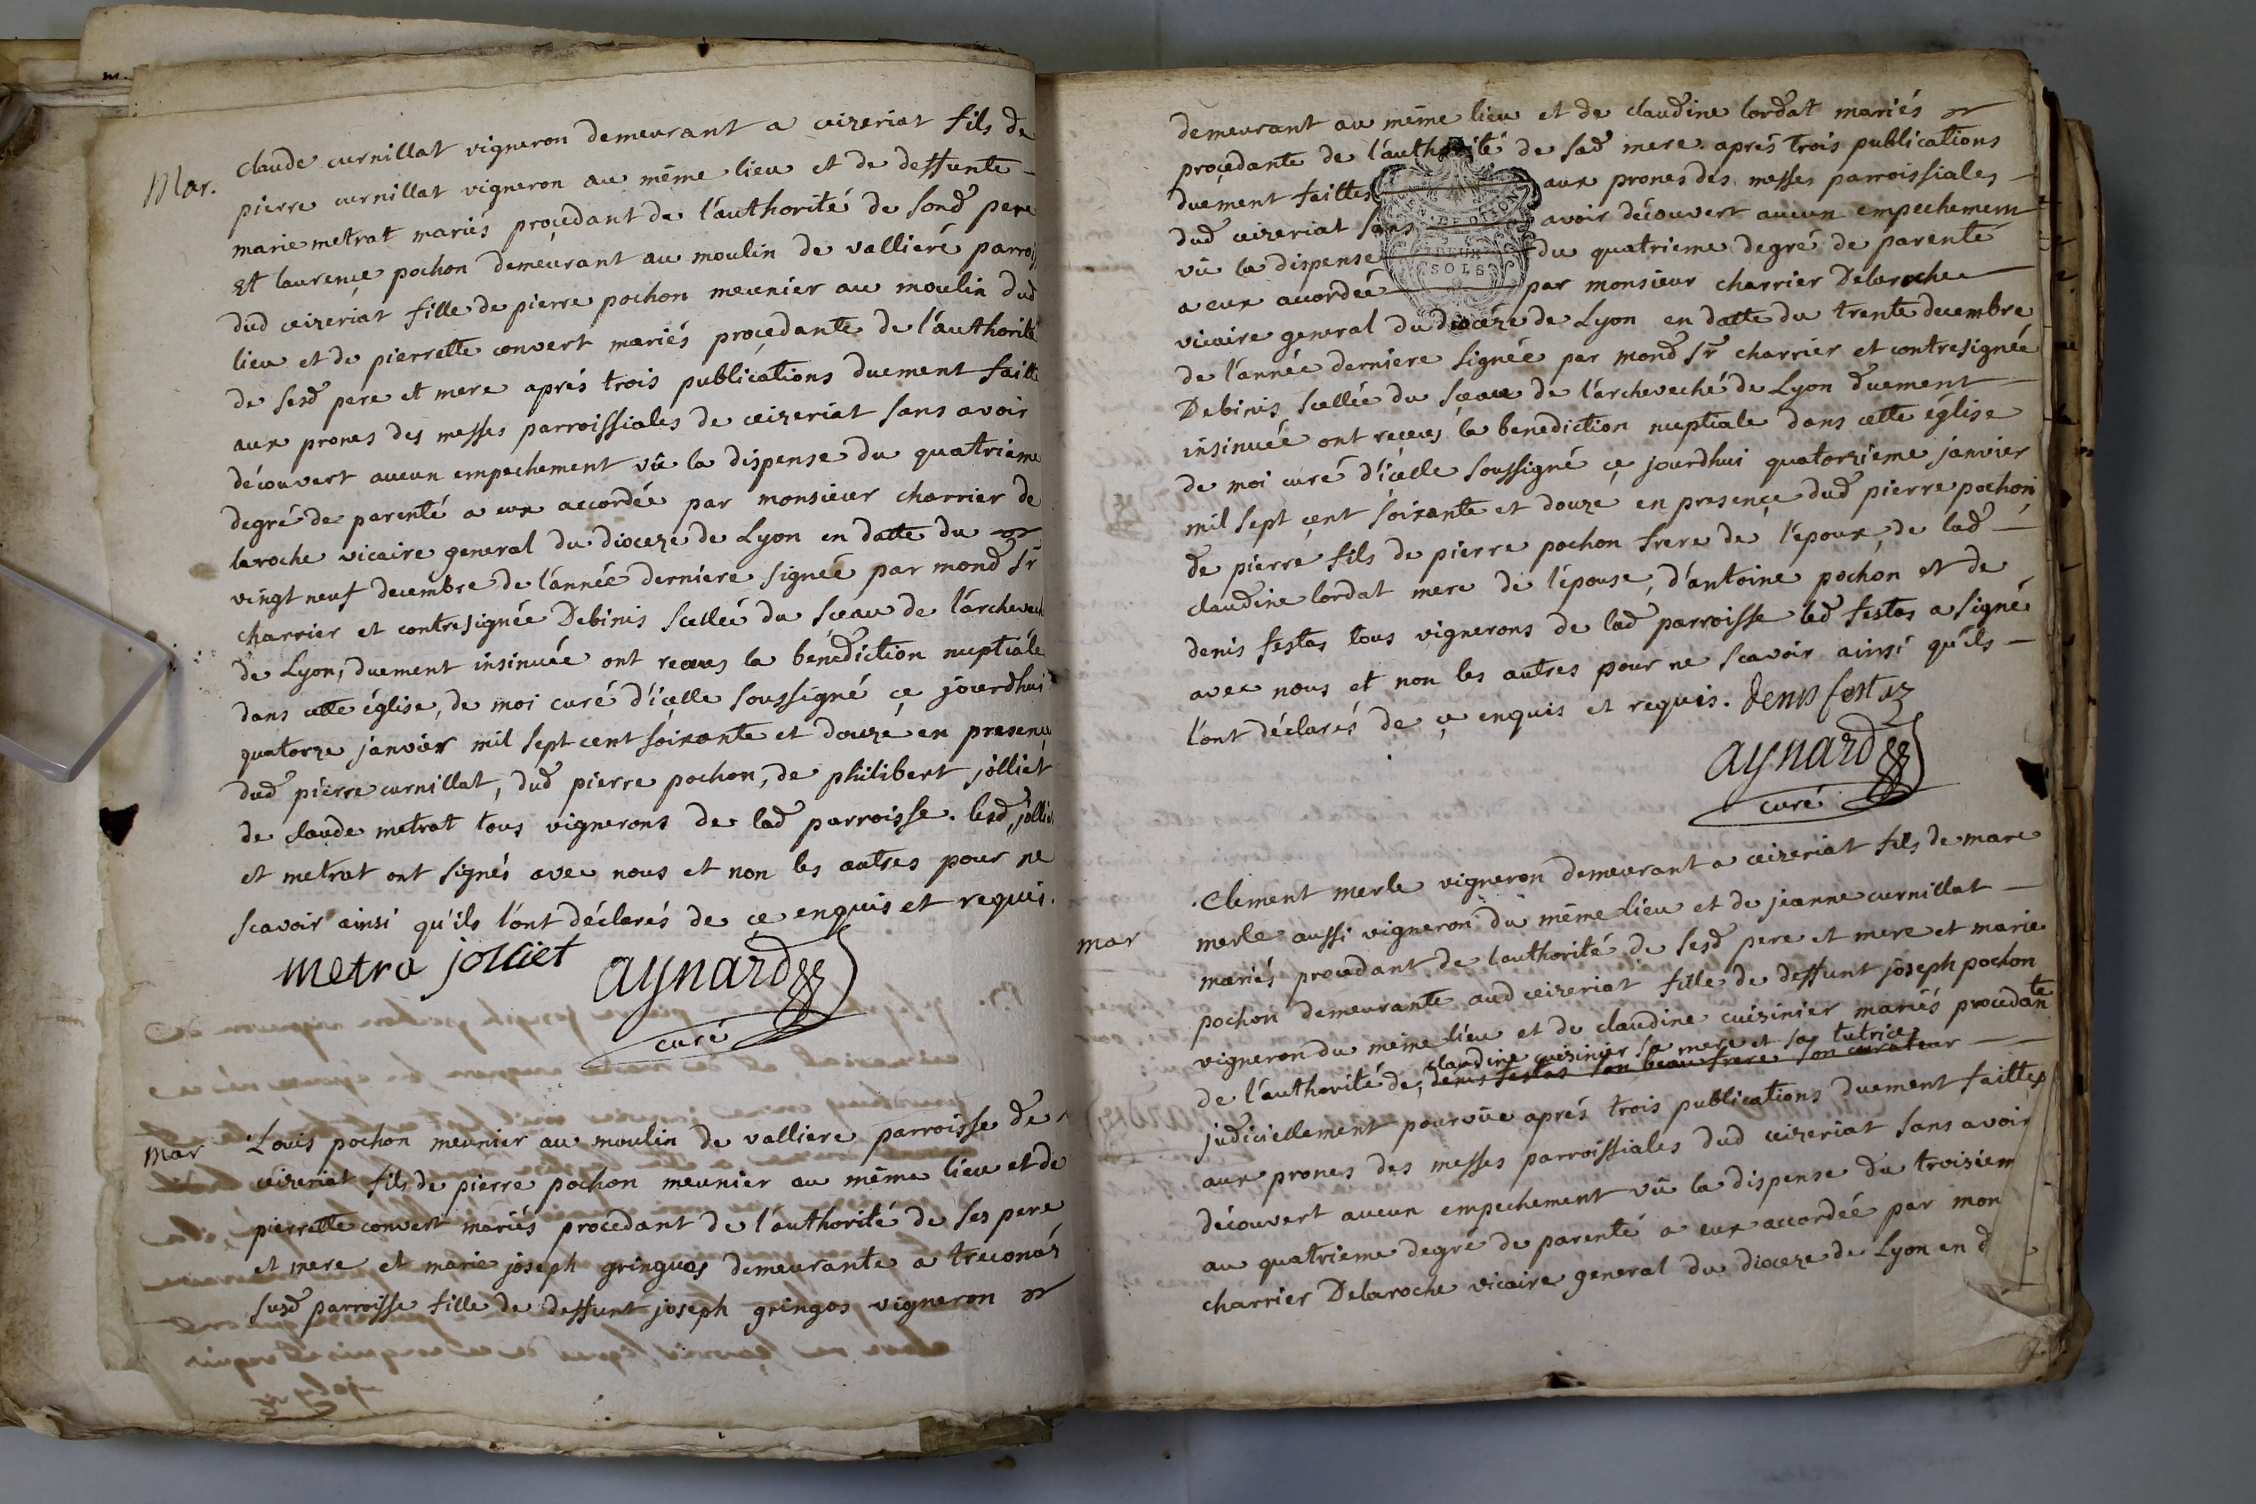 Mar.
claude curnillat vigneron demeurant a ceizeriat fils de
pierre curnillat vigneron au même lieu et de deffunte
marie metrat mariés proçedant de l'authorité de sond pere
Et laurençe pochon demeurant au moulin de vallieré parrois
dud ceizeriat fille de pierre pochon meunier au moulin dud
lieu et de pierrette convert mariés proçedante de l'authorité
de sesd pere et mere aprés trois publications duement faitte
aux prones des messes parroissiales de ceizeriat sans avoir
découvert aucun empechement vû la dispense du quatrieme
degré de parenté a eux accordée par monsieur charrier de
laroche vicaire general du dioceze de Lyon en datte du
vingt neuf decembre de l'année derniere signée par mond sr
charrier et contresignée Debinis scellée du sceau de l'archeveché
de Lyon, duement insinuée ont receus la bénédiction nuptiale
dans cette église, de moi curé d'içelle soussigné çe jourdhui
quatorze janvier mil sept cent soixante et douze en presençe
dud pierre curnillat, dud pierre pochon, de philibert jolliet
de claude metrat tous vignerons de lad parroisse. lesd jolliet
et metrat ont signés avec nous et non les autres pour ne
scavoir ainsi qu'ils l'ont déclarés de çe enquis et requis.
metra jolliet aynard
curé
mar
Louis pochon meunier au moulin de valliere parroisse de
ceizeriat fils de pierre pochon meunier au même lieu et de
pierrette convert mariés procedant de l'authorité de ses pere
et mere et marie joseph gringuos demeurante a treconaz
susd parroisse fille de deffunt joseph gringos vigneron
demeurant au même lieu et de claudine lordat mariés
proçedante de l'authorité de sad mere. aprés trois publications
duement faittes aux prones des messes parroissiales
dud ceizeriat sans avoir découvert aucun empechement
vû la dispense du quatrieme degré de parenté
a eux accordée par monsieur charrier Delaroche
DEUX
SOLS
vicaire general du dioceze de Lyon en datte du trente decembre
de l'année derniere signée par mond sr charrier et contresignée
Debinis, scellée du sceau de l'archeveché de Lyon duement
insinuée ont receus la benediction nuptiale dans cette église
de moi curé d'içelle soussigné çe jourdhui quatorzieme janvier
mil sept çent soixante et douze en presençe dud pierre pochon
de pierre fils de pierre pochon frere de l'époux de lad
claudine lordat mere de l'épouse, d'antoine pochon et de
denis festas tous vignerons de lad parroisse led festas a signé
avec nous et non les autres pour ne scavoir ainsi qu'ils
l'ont déclarés de çe enquis et requis. denis festaz
aynard
curé
mar
Clement merle vigneron demeurant a ceizeriat fils de marc
merle aussi vigneron du même lieu et de jeanne curnillat
mariés procedant de l'authorité de sesd pere et mere et marie
pochon demeurante aud ceizeriat fille de deffunt joseph pochon
vigneron du même lieu et de claudine cuizinier mariés procedante
claudine cuizinier sa mere et sa tutrice
de l'authorité de, denis festas son beau frere son curateur
judiciellement pourvûe aprés trois publications duement faittes
aux prones des messes parroissiales dud ceizeriat sans avoir
découvert aucun empechement vû la dispense du troisiem
au quatrieme degré de parenté a eux accordée par mon
charrier Delaroche vicaire general du dioceze de Lyon en d